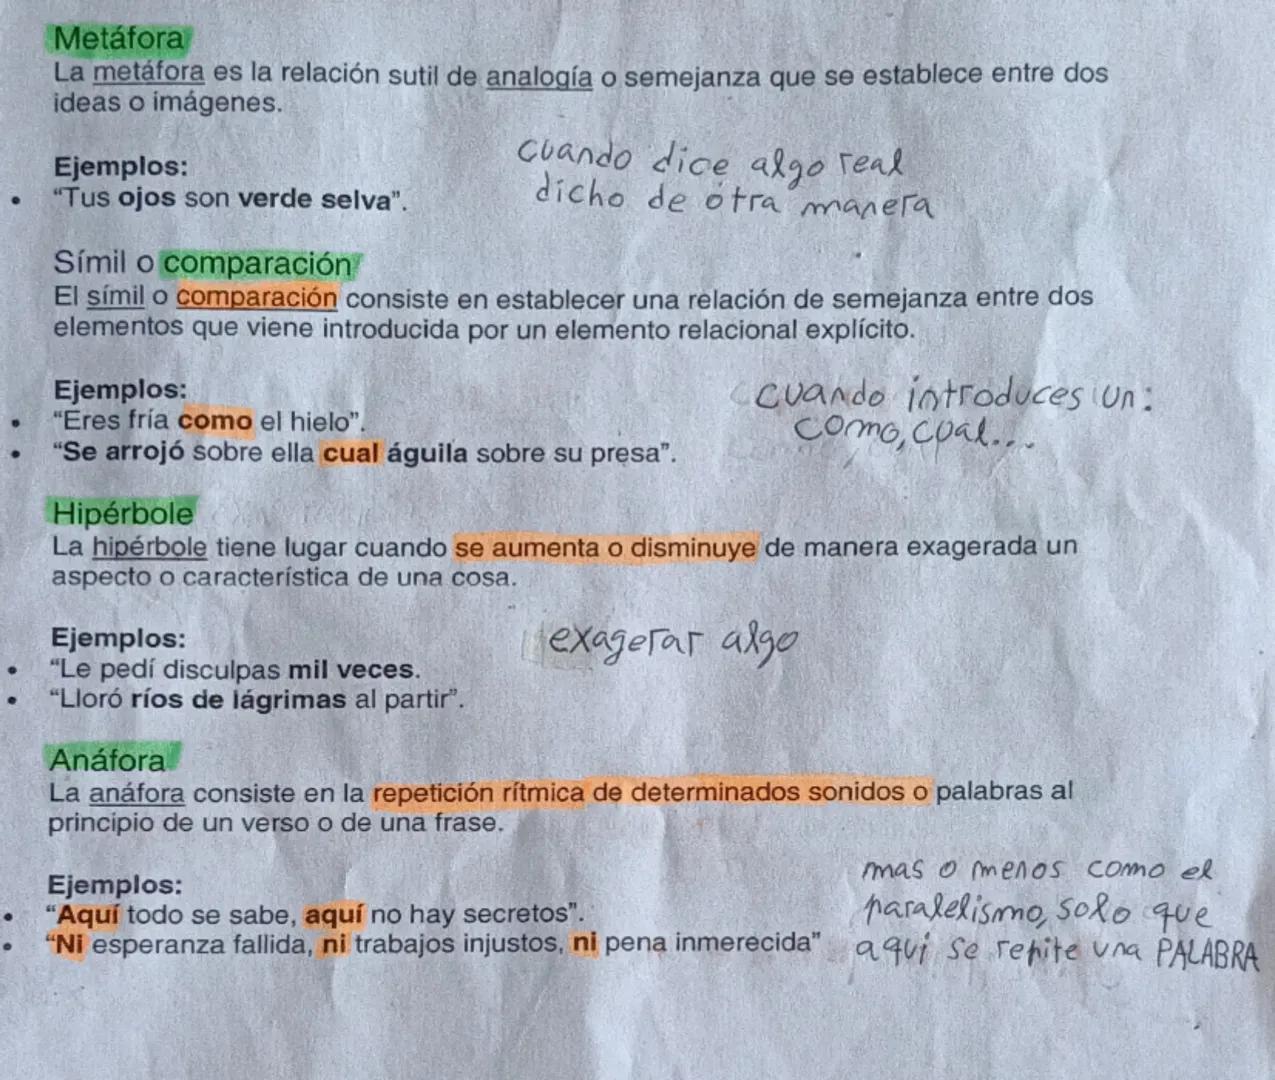 Metáfora
La metáfora es la relación sutil de analogía o semejanza que se establece entre dos
ideas o imágenes.
Ejemplos:
• “Tus ojos son verde selva”.
cuando dice algo real
dicho de otra manera
Símil o comparación
El símil o comparación consiste en establecer una relación de semejanza entre dos
elementos que viene introducida por un elemento relacional explícito.
Ejemplos:
• “Eres fría como el hielo”.
• “Se arrojó sobre ella cual águila sobre su presa”.
cuando introduces un:
como, cual...
Hipérbole
La hipérbole tiene lugar cuando se aumenta o disminuye de manera exagerada un
aspecto o característica de una cosa.
Ejemplos:
• “Le pedí disculpas mil veces.
• “Lloró ríos de lágrimas al partir”.
exagerar algo
Anáfora
La anáfora consiste en la repetición rítmica de determinados sonidos o palabras al
principio de un verso o de una frase.
Ejemplos:
• “Aquí todo se sabe, aquí no hay secretos”.
• “Ni esperanza fallida, ni trabajos injustos, ni pena inmerecida”
mas o menos como el
paralelismo, solo que
aqui se repite una PALABRA